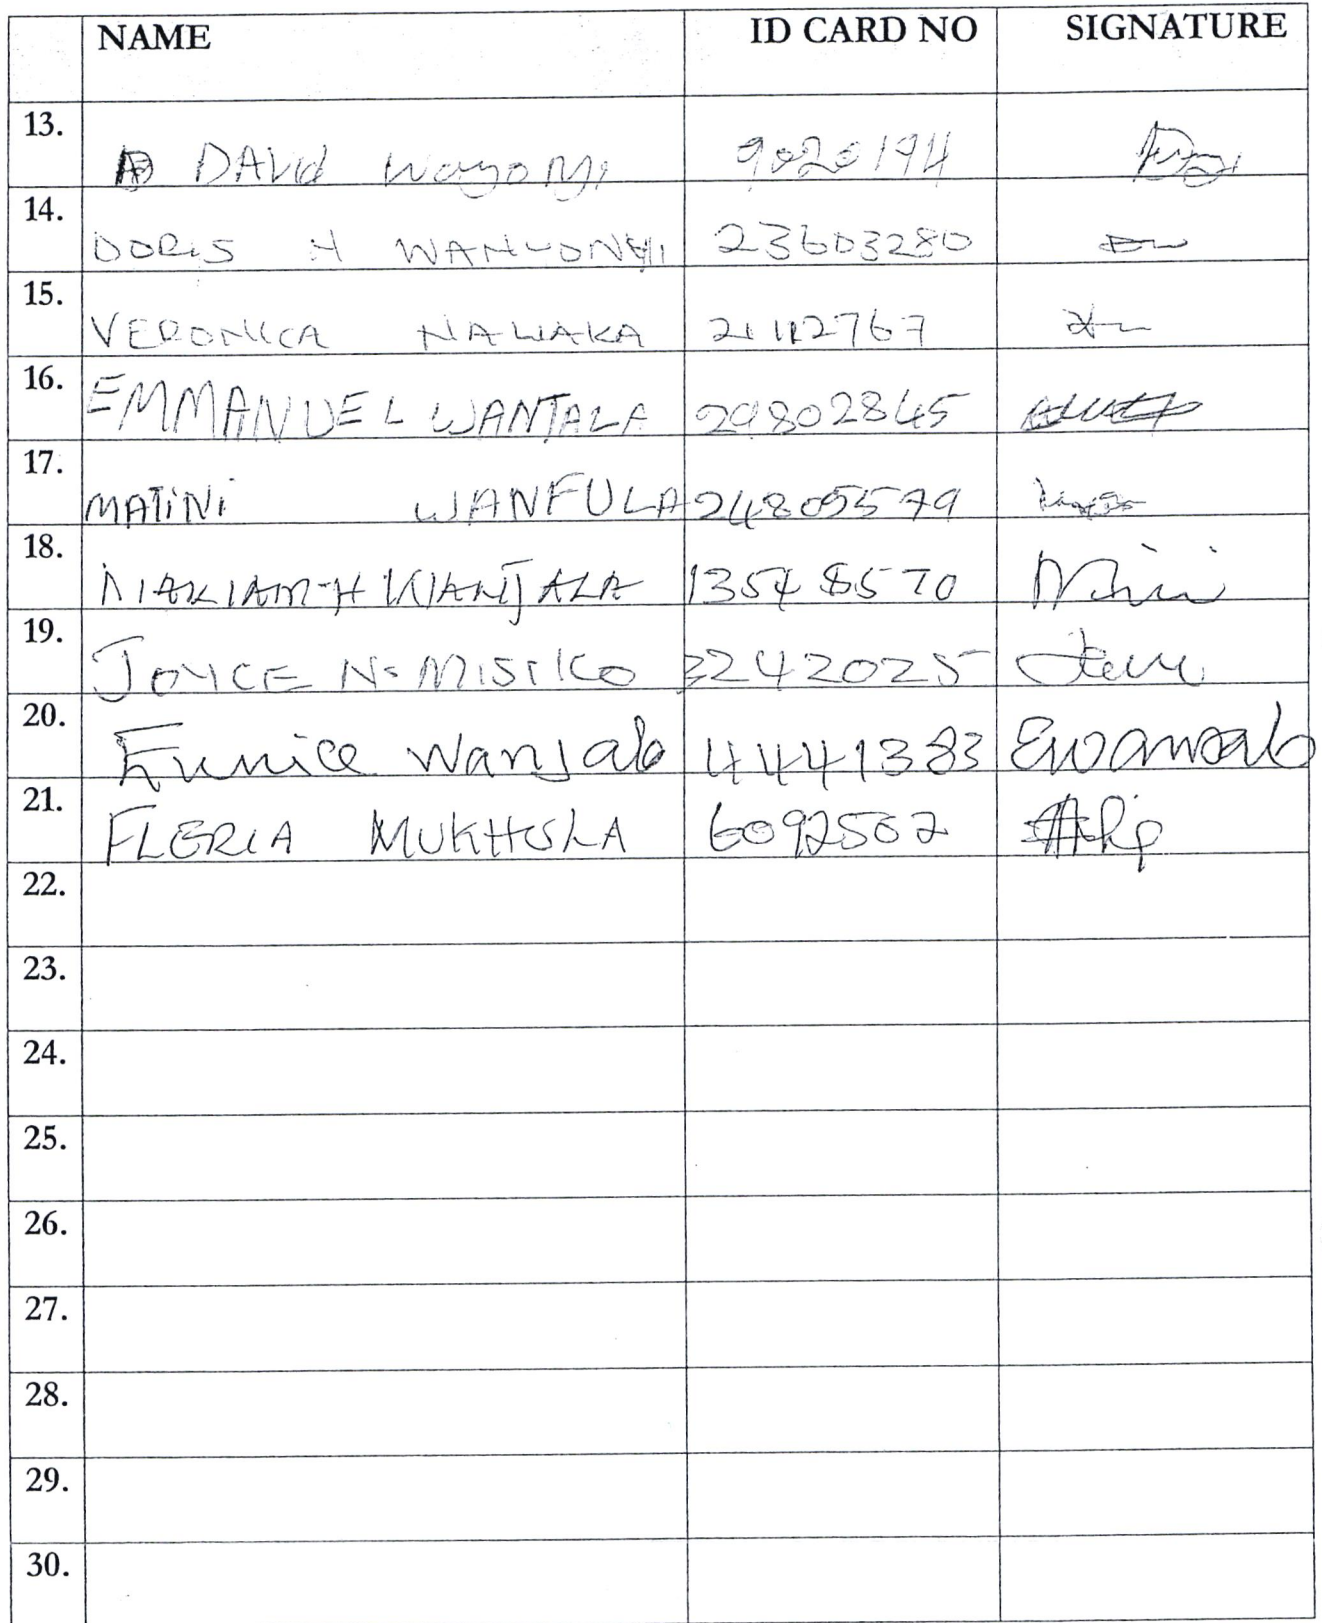 NAME ID CARD NO SIGNATURE
13. DAVid Wayonyi 9020194
14. DORIS N WANYONYI 23603280
15. VERONICA NAWAKA 21112767
16. EMMANUEL WANJALA 29802845
17. MATiNi WANFULA 24805579
18. MARIAM H WANJALA 13548570
19. JOYCE N. MISIKO 2242025
20. Eunice Wanjala 4441383 Ewanjala
21. FLERIA MUKHOLA 6092502
22.
23.
24.
25.
26.
27.
28.
29.
30.